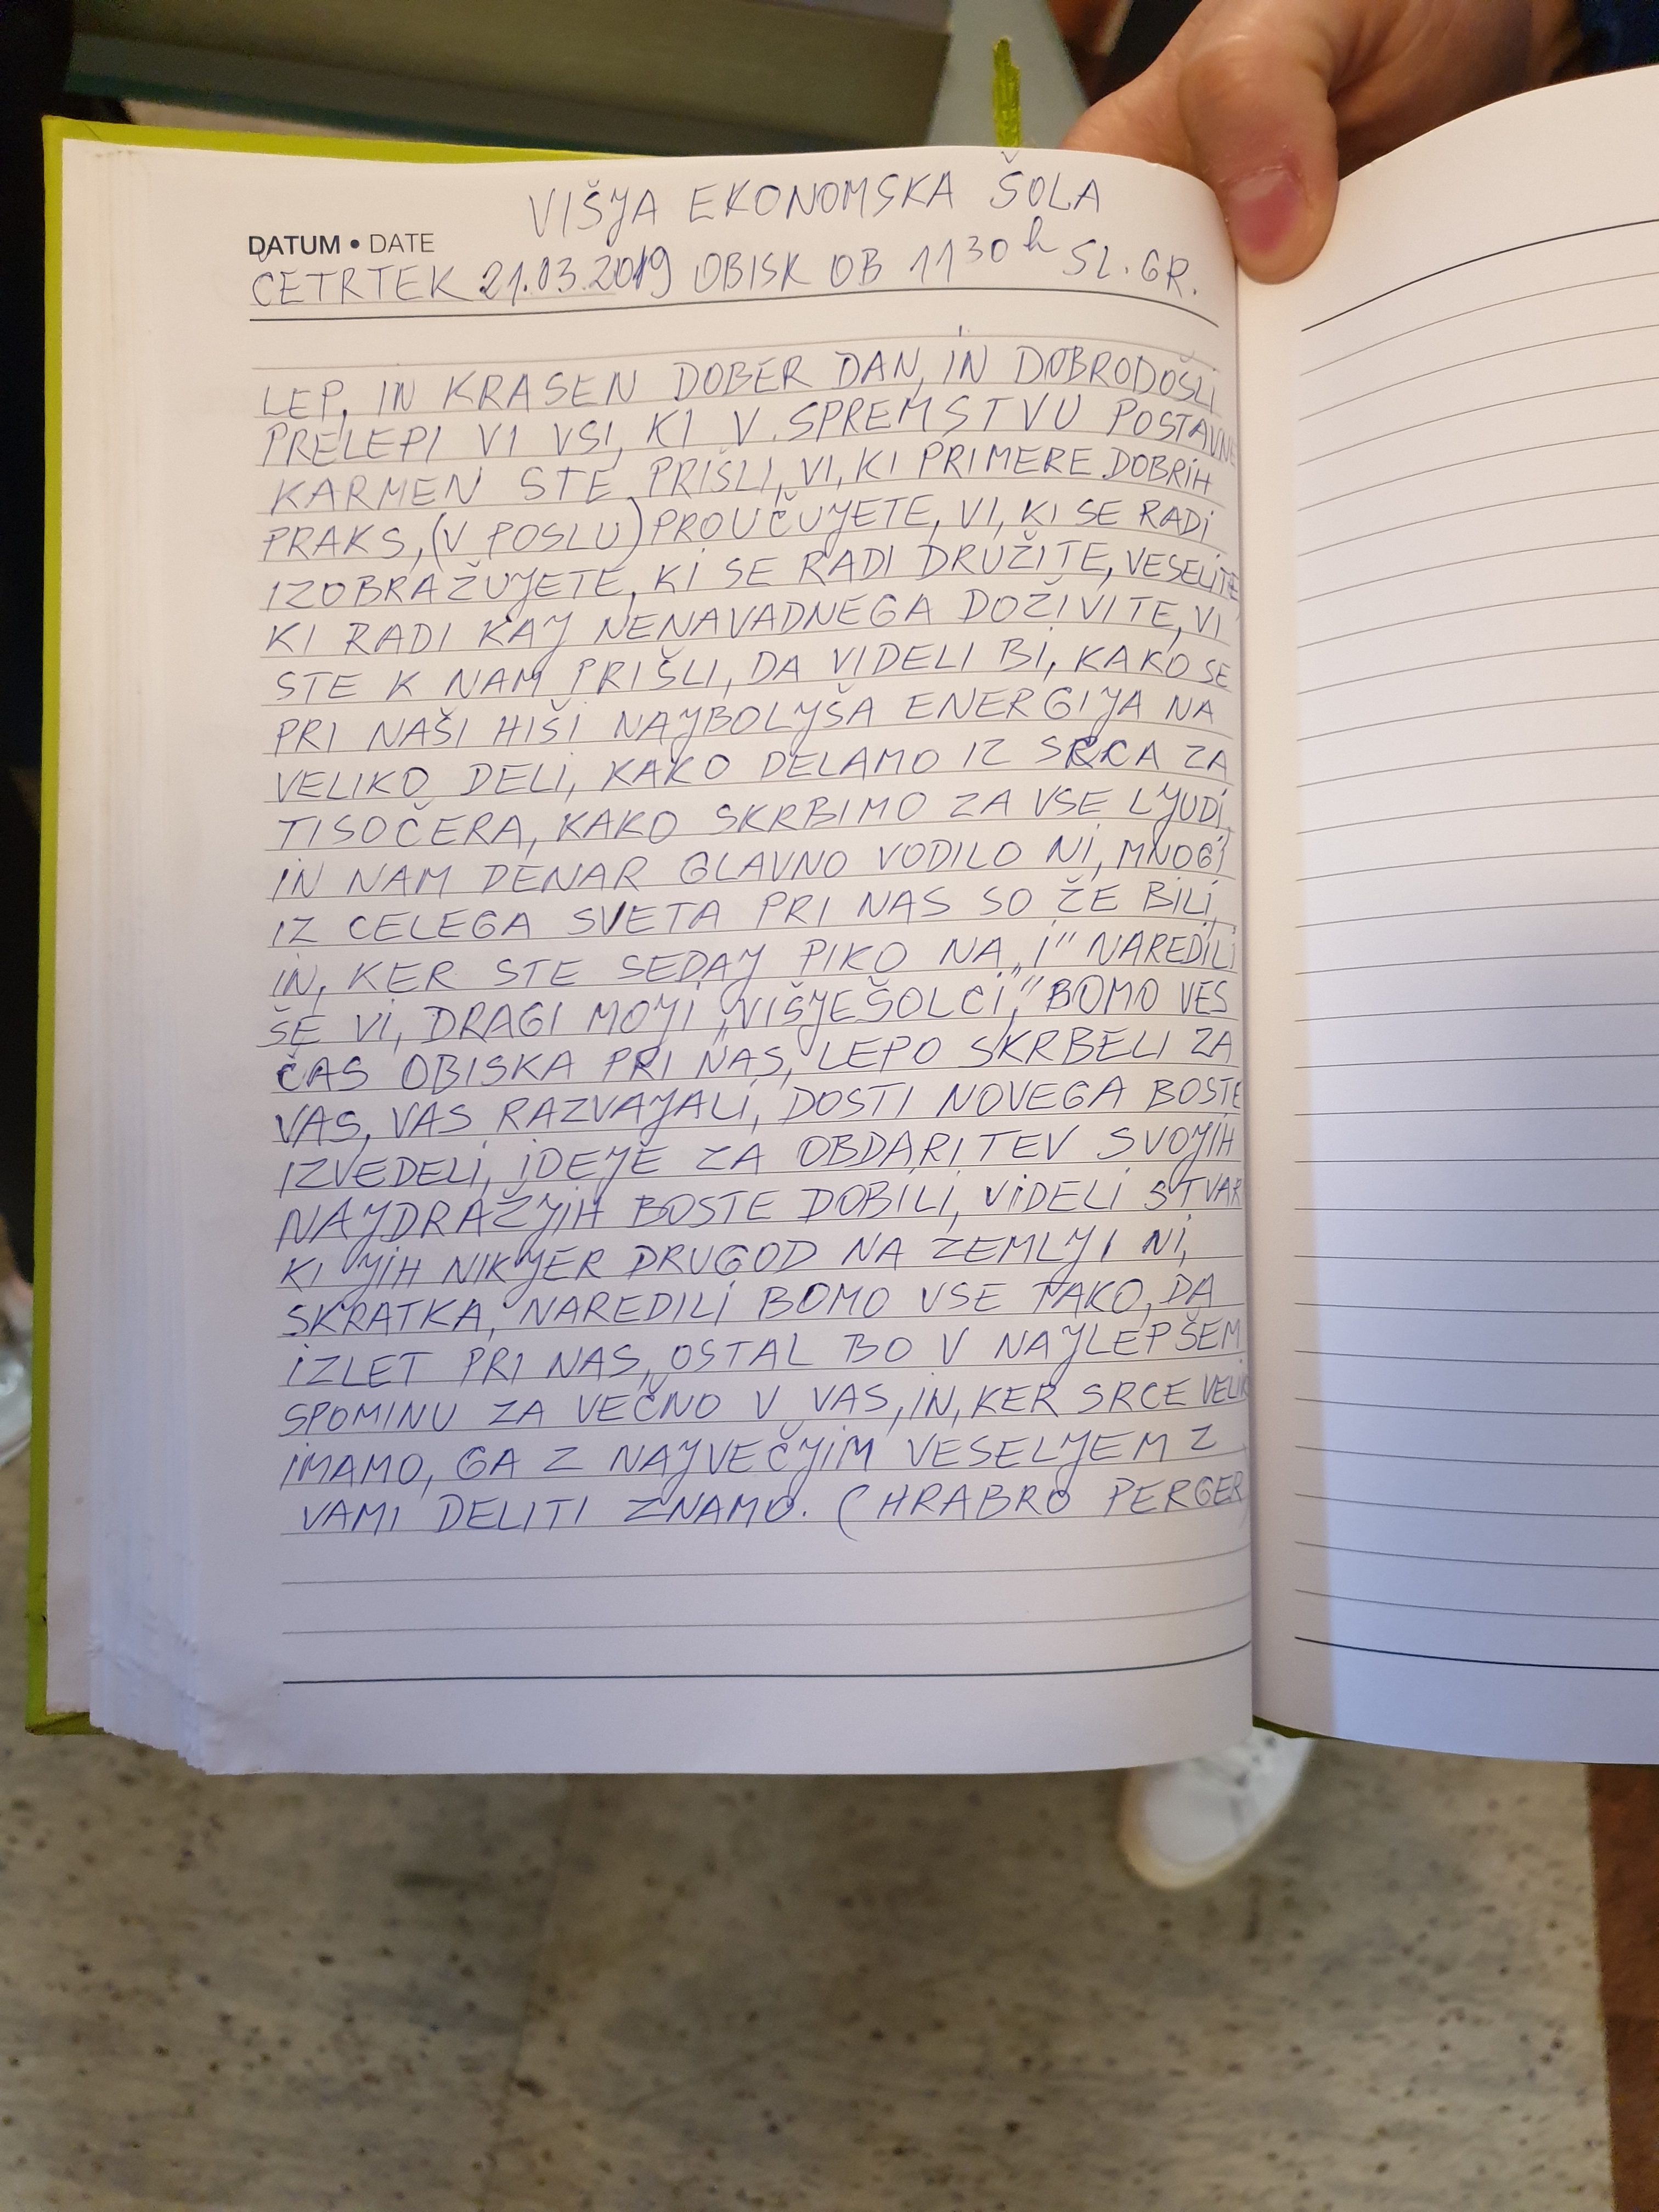 VIŠJA EKONOMSKA ŠOLA
DATUM • DATE
ČETRTEK 21.03.2019 OBISK OB 11 30 h SL. GR.
LEP, IN KRASEN DOBER DAN, IN DOBRODOŠLI
PRELEPI VI VSI, KI V SPREMSTVU POSTAVNE
KARMEN STE PRIŠLI, VI, KI PRIMERE DOBRIH
PRAKS, (V POSLU) PROUČUJETE, VI, KI SE RADI
IZOBRAŽUJETE, KI SE RADI DRUŽITE, VESELITE
KI RADI KAJ NENAVADNEGA DOŽIVITE, VI
STE K NAM PRIŠLI, DA VIDELI BI, KAKO SE
PRI NAŠI HIŠI NAJBOLJŠA ENERGIJA NA
VELIKO DELI, KAKO DELAMO IZ SRCA ZA
TISOČERA, KAKO SKRBIMO ZA VSE LJUDI,
IN NAM DENAR GLAVNO VODILO NI, MNOGI
IZ CELEGA SVETA PRI NAS SO ŽE BILI,
IN, KER STE SEDAJ PIKO NA „I" NAREDILI
ŠE VI, DRAGI MOJI „VIŠJEŠOLCI," BOMO VES
ČAS OBISKA PRI NAS, LEPO SKRBELI ZA
VAS, VAS RAZVAJALI, DOSTI NOVEGA BOSTE
IZVEDELI, IDEJE ZA OBDARITEV SVOJIH
NAJDRAŽJIH BOSTE DOBILI, VIDELI STVARI
KI JIH NIKJER DRUGOD NA ZEMLJI NI,
SKRATKA, NAREDILI BOMO VSE TAKO, DA
IZLET PRI NAS, OSTAL BO V NAJLEPŠEM
SPOMINU ZA VEČNO V VAS, IN, KER SRCE VELIKO
IMAMO, GA Z NAJVEČJIM VESELJEM Z
VAMI DELITI ZNAMO. (HRABRO PERGER)